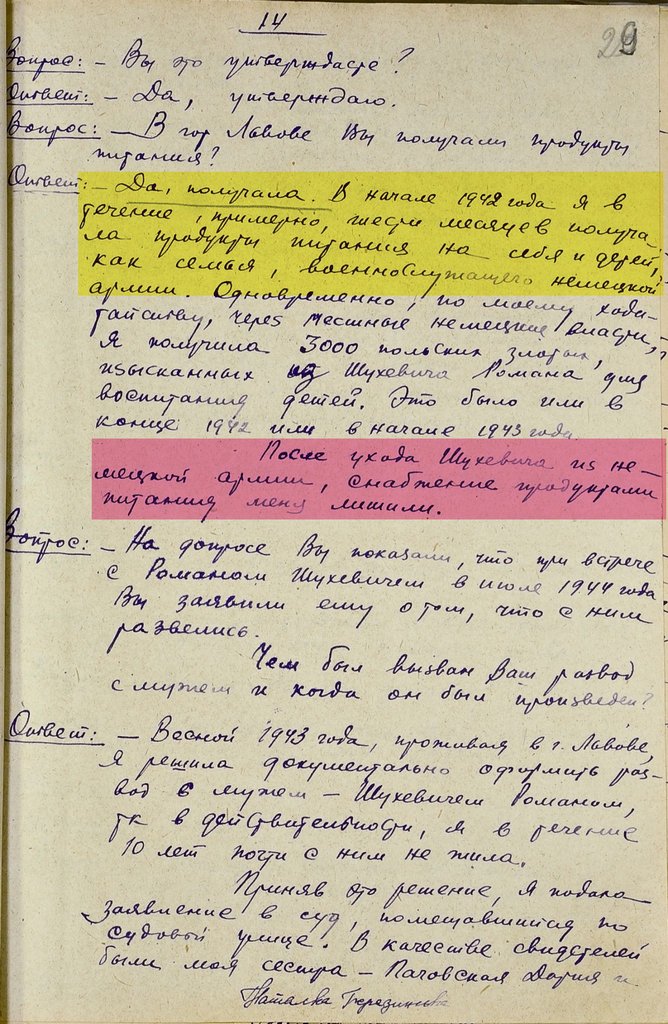 14
29
Вопрос: – Вы это утверждаете?
Ответ: – Да, утверждаю.
Вопрос: – В гор Львове Вы получали продукты
питания?
Ответ: – Да, получала. В начале 1942 года я в
течение, примерно, шести месяцев получа-
ла продукты питания на себя и детей,
как семья, военнослужащего немецкой
армии. Одновременно, по моему хода-
тайству, через местные немецкие власти,
я получила 3000 польских злотых,
изысканных из Шухевича Романа для
воспитания детей. Это было или в
конце 1942 или в начале 1943 года.
После ухода Шухевича из не-
мецкой армии, снабжение продуктами
питания меня лишили.
Вопрос: – На допросе Вы показали, что при встрече
с Романом Шухевичем в июле 1944 года
Вы заявили ему о том, что с ним
развелись.
Чем был вызван Ваш развод
с мужем и когда он был произведен?
Ответ: – Весной 1943 года, проживая в г. Львове,
я решила документально оформить раз-
вод с мужем – Шухевичем Романом,
тк в действительности, я в течение
10 лет почти с ним не жила.
Приняв это решение, я подала
заявление в суд, помещавшийся по
судовой улице. В качестве свидетелей
были моя сестра – Пачовская Дария и
Наталья